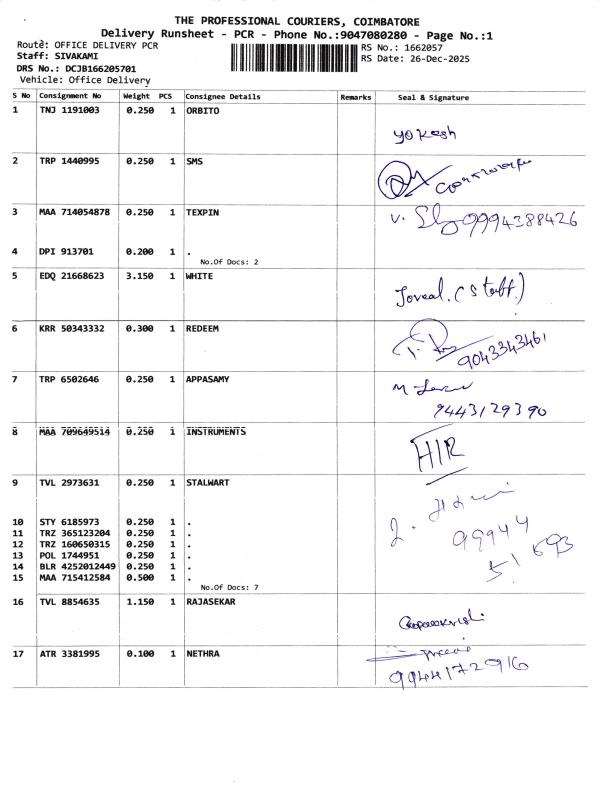 THE PROFESSIONAL COURIERS, COIMBATORE
Delivery Runsheet - PCR - Phone No.:9047080280 - Page No.:1
Route: OFFICE DELIVERY PCR
Staff: SIVAKAMI
DRS No.: DCJB166205701
Vehicle: Office Delivery
RS No.: 1662057
RS Date: 26-Dec-2025
S No Consignment No Weight PCS Consignee Details Remarks Seal & Signature
1 TNJ 1191003 0.250 1 ORBITO
yokesh
2 TRP 1440995 0.250 1 SMS
3 MAA 714054878 0.250 1 TEXPIN
V. 9994388426
4 DPI 913701 0.200 1 .
No.Of Docs: 2
5 EDQ 21668623 3.150 1 WHITE
(Staff.)
6 KRR 50343332 0.300 1 REDEEM
9043343461
7 TRP 6502646 0.250 1 APPASAMY
M
9443129390
8 MAA 709649514 0.250 1 INSTRUMENTS
HIR
9 TVL 2973631 0.250 1 STALWART
10 STY 6185973 0.250 1 .
11 TRZ 365123204 0.250 1 .
12 TRZ 160650315 0.250 1 .
13 POL 1744951 0.250 1 .
14 BLR 4252012449 0.250 1 .
15 MAA 715412584 0.500 1 .
99944
51693
No.Of Docs: 7
16 TVL 8854635 1.150 1 RAJASEKAR
17 ATR 3381995 0.100 1 NETHRA
9944172916